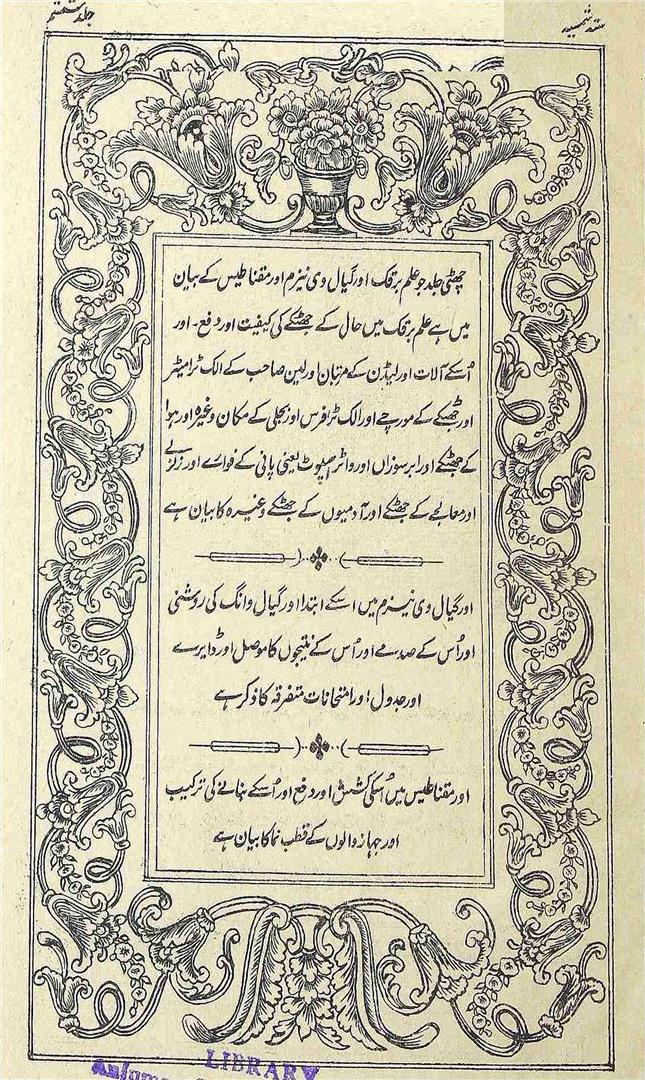 ستہ شمسیہ
جلد ششم
چھٹی جلد جو علم برقک اور گیال وی نیزم اور مقناطیس کے بیان
میں ہے علم برقک میں حال کے جھٹکے کی کیفیت اور دفع۔ اور
اُسکے آلات اور لیڈن کے مرتبان اور لین صاحب کے الک ٹرامیٹر
اور جھٹکے کے مورچے اور الک ٹرافرس اور بجلی کے مکان وغیرہ اور ہوا
کے جھٹکے اور ابر سوزاں اور واٹر اسپوٹ یعنی پانی کے فوارے اور زلزلے
اور معالجے کے جھٹکے اور آدمیوں کے جھٹکے وغیرہ کا بیان ہے
اور گیال وی نیزم میں اسکے ابتدا اور گیال وانگ کی روشنی
اور اُس کے صدمے اور اُس کے نتیجوں کا موصل اور دایرے
اور جدول اور امتحانات متفرقہ کا ذکر ہے
اور مقناطیس میں اُسکی کشش اور دفع اور اُسکے بنانے کی ترکیب
اور جہاز والوں کے قطب نما کا بیان ہے
LIBRARY